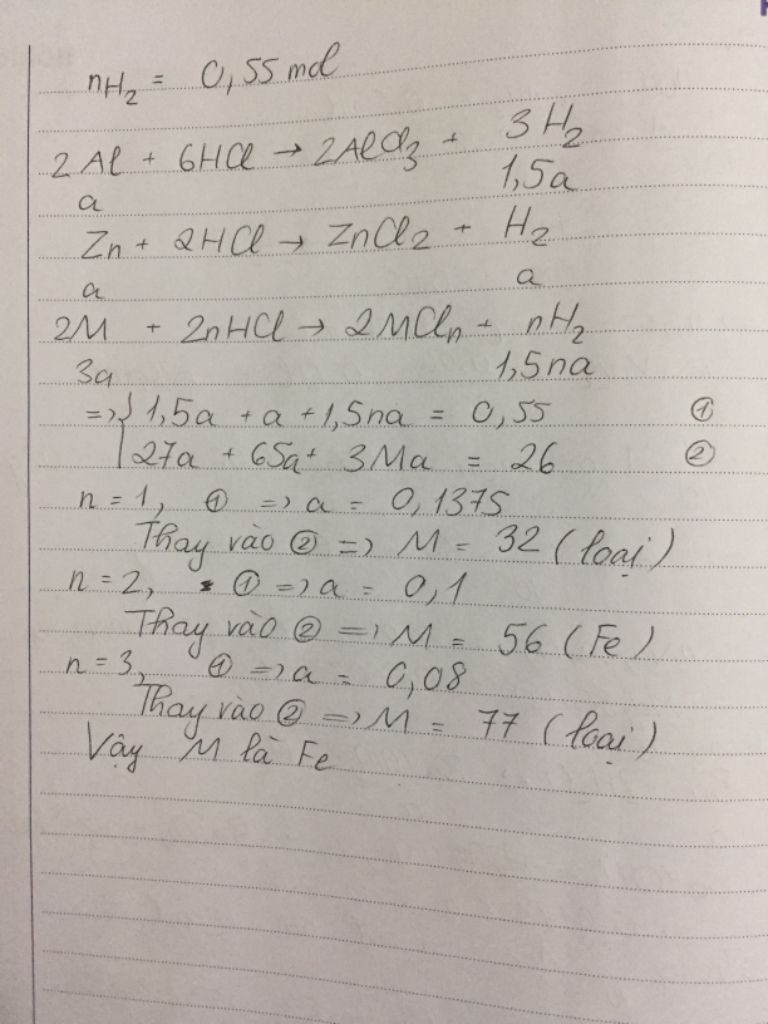 nH₂ = 0,55 mol
2Al + 6HCl → 2AlCl₃ + 3H₂
a 1,5a
Zn + 2HCl → ZnCl₂ + H₂
a a
2M + 2nHCl → 2MClₙ + nH₂
3a 1,5na
=> { 1,5a + a + 1,5na = 0,55 ①
27a + 65a + 3Ma = 26 ②
n = 1, ① => a = 0,1375
Thay vào ② => M = 32 (loại)
n = 2, ① => a = 0,1
Thay vào ② => M = 56 (Fe)
n = 3, ① => a = 0,08
Thay vào ② => M = 77 (loại)
Vậy M là Fe